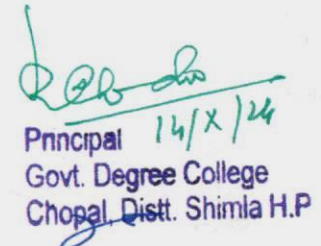 14/X/24
Principal
Govt. Degree College
Chopal, Distt. Shimla H.P